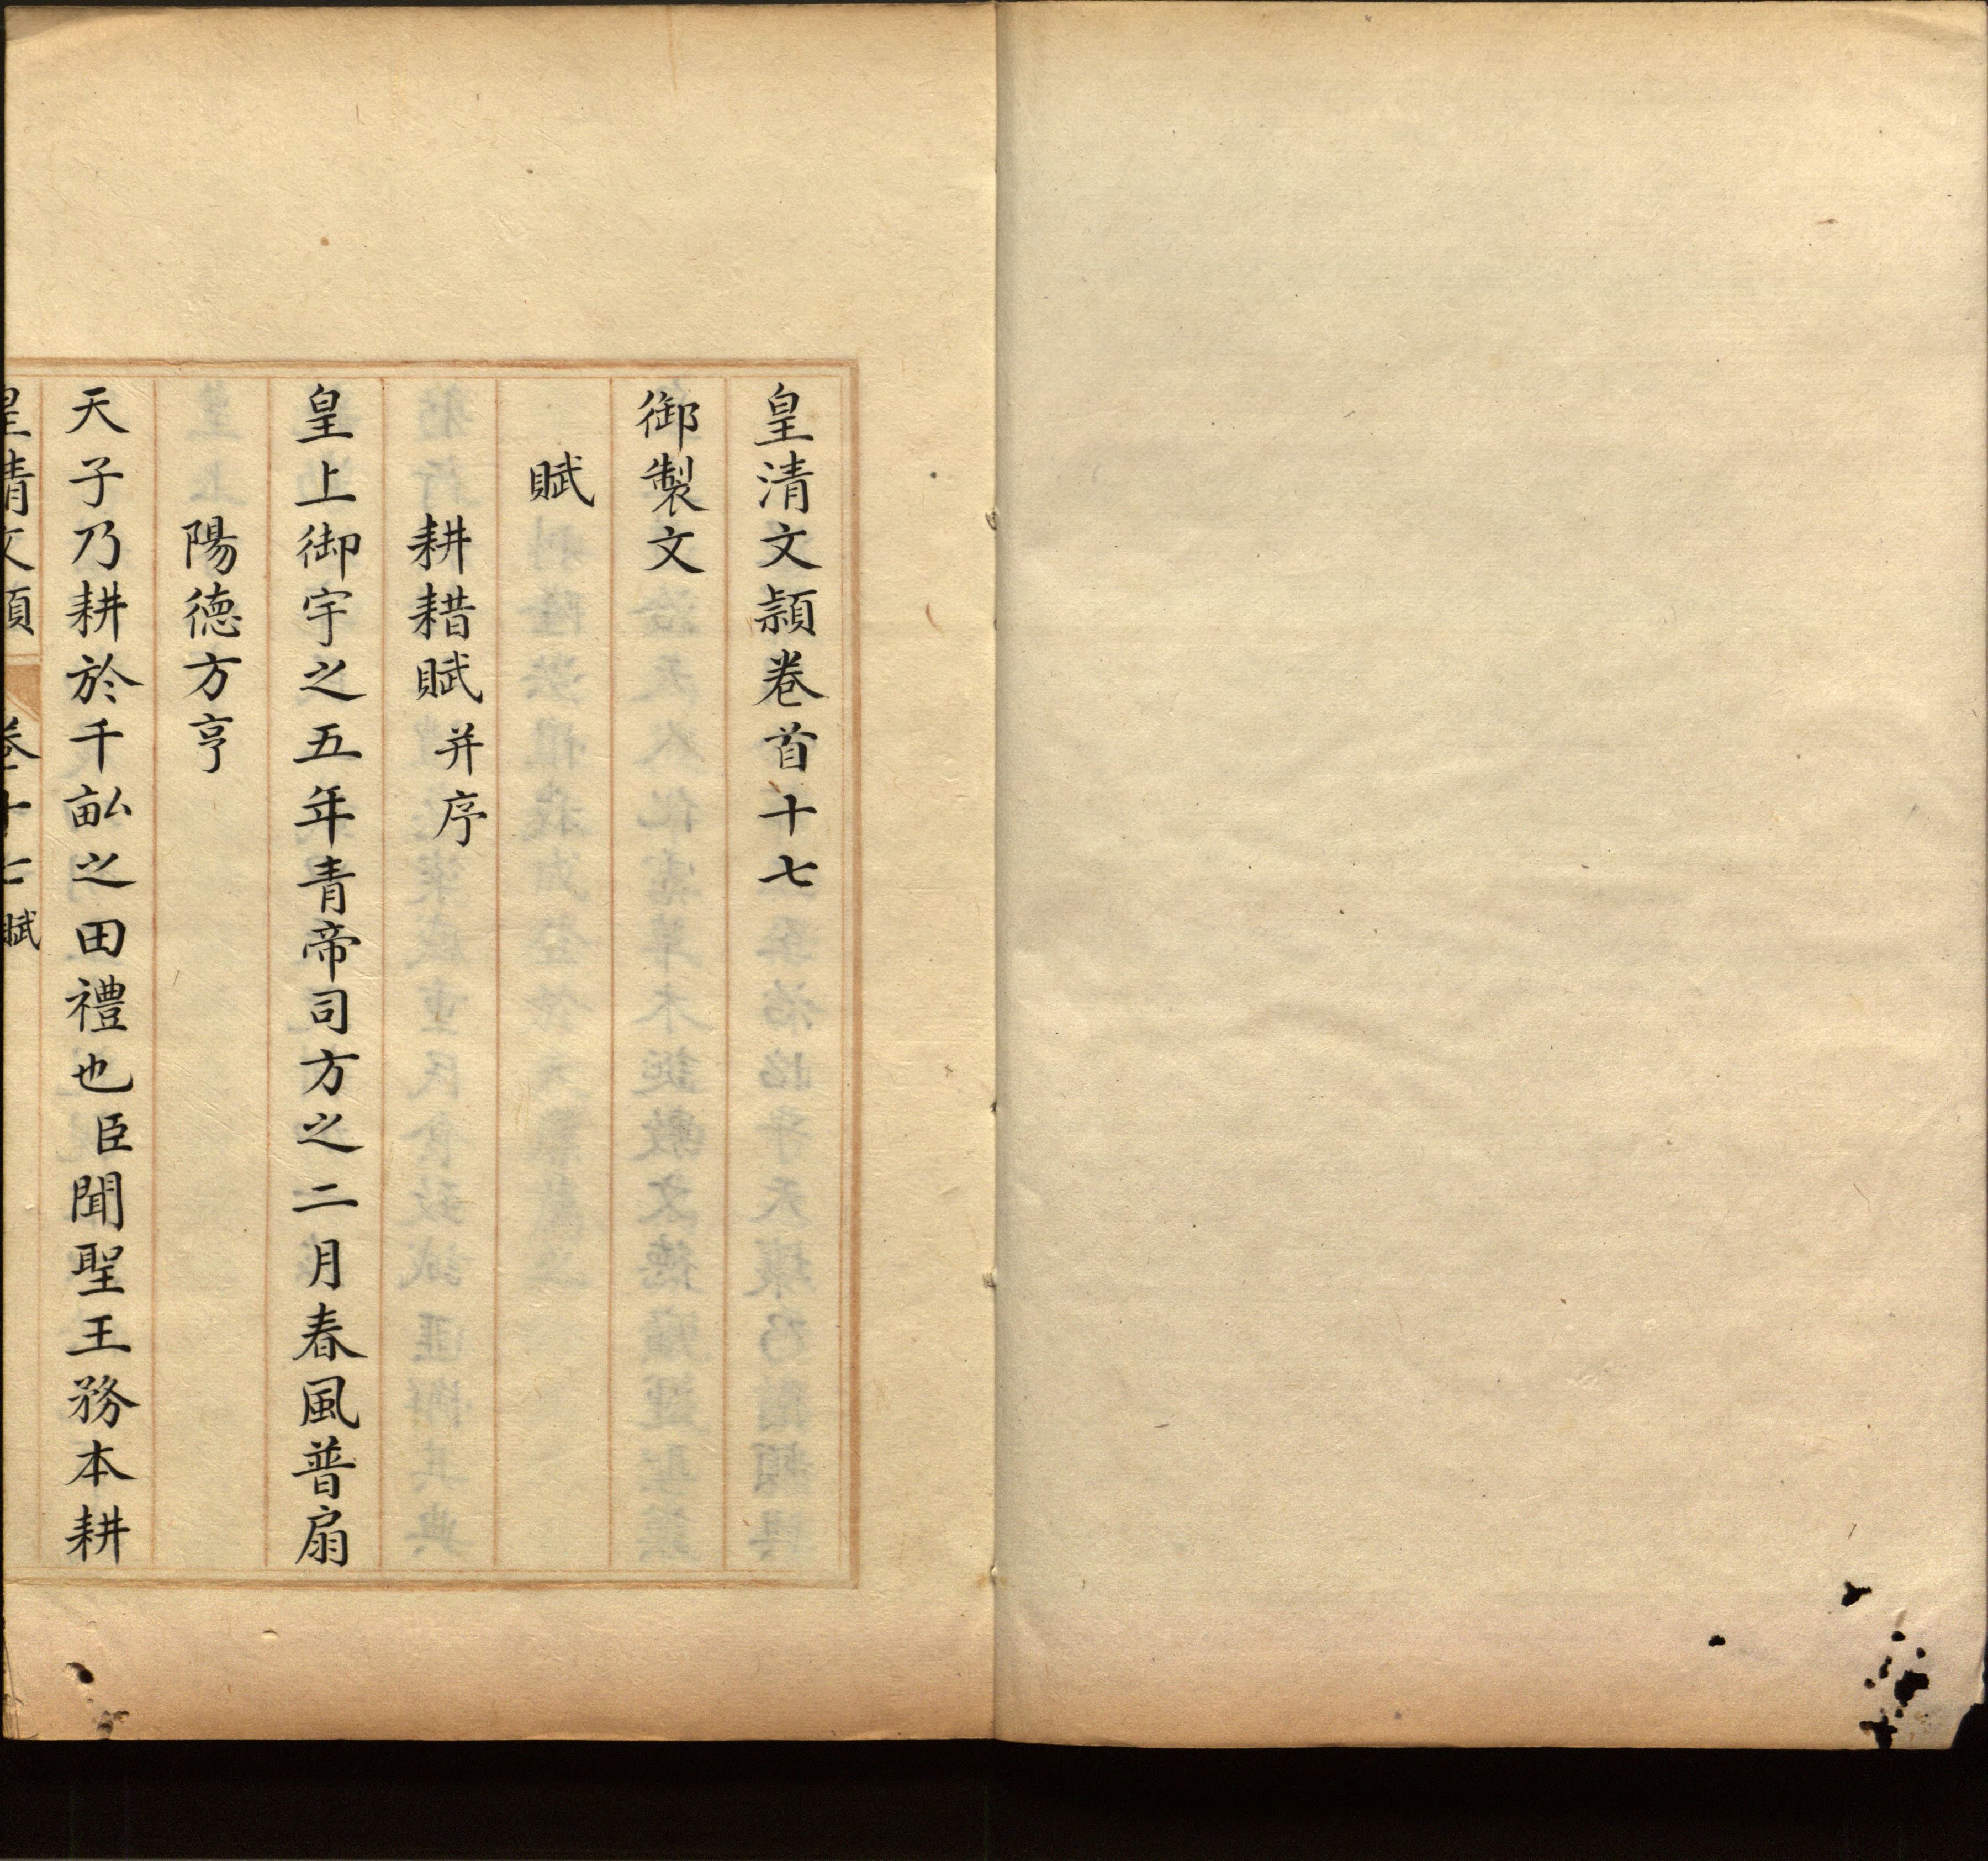 皇清文頴卷首十七
御製文
賦
耕耤賦并序
皇上御宇之五年青帝司方之二月春風普扇
陽德方亨
天子乃耕於千畝之田禮也臣聞聖王務本耕
皇清文頴 卷十七 賦